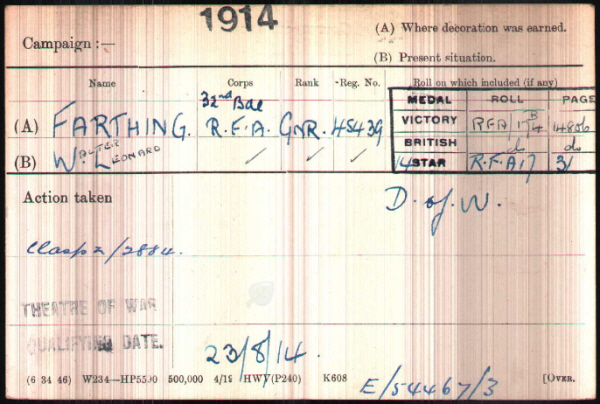 1914
Campaign :—
(A) Where decoration was earned.
(B) Present situation.
Name Corps Rank Reg. No. Roll on which included (if any)
32nd Bde
MEDAL ROLL PAGE
(A) FARTHING. R.F.A. GNR. 45439
VICTORY RFA/17B4 1480b
BRITISH do do
(B) Walter Leonard ✓ ✓ ✓
14 STAR R.F.A 17 31
Action taken
D. of W.
Clasp /2884.
THEATRE OF WAR
QUALIFYING DATE.
23/8/14.
(6 34 46) W234—HP5590 500,000 4/19 HWV(P240) K608
E/54467/3
[OVER.